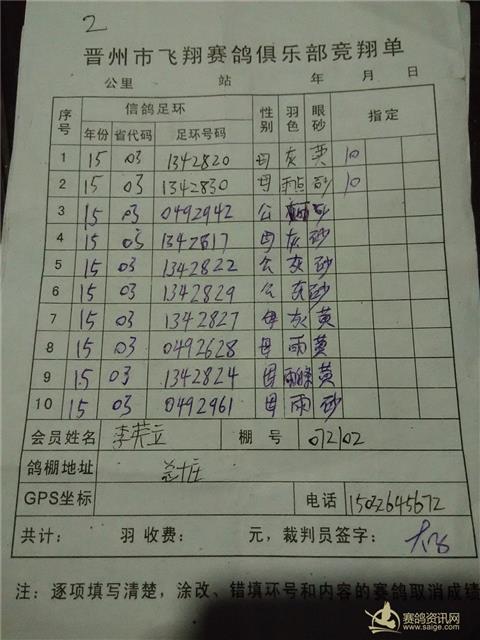 2
晋州市飞翔赛鸽俱乐部竞翔单
公里 站 年 月 日
序号 信鸽足环 性别 羽色 眼砂 指定
年份 省代码 足环号码
1 15 03 1342820 母 灰 黄 10
2 15 03 1342830 母 砂 10
3 15 03 0492942 公 砂
4 15 03 1342817 母 灰 砂
5 15 03 1342822 公 灰 砂
6 15 03 1342829 公 灰 砂
7 15 03 1342827 母 灰 黄
8 15 03 0492628 母 雨 黄
9 15 03 1342824 母 雨條 黄
10 15 03 0492961 母 雨 砂
会员姓名 李英立 棚号 072102
鸽棚地址 总十庄
GPS坐标 电话 15032645672
共计: 羽 收费: 元，裁判员签字:
注：逐项填写清楚，涂改、错填环号和内容的赛鸽取消成绩
赛鸽资讯网
www.saige.com